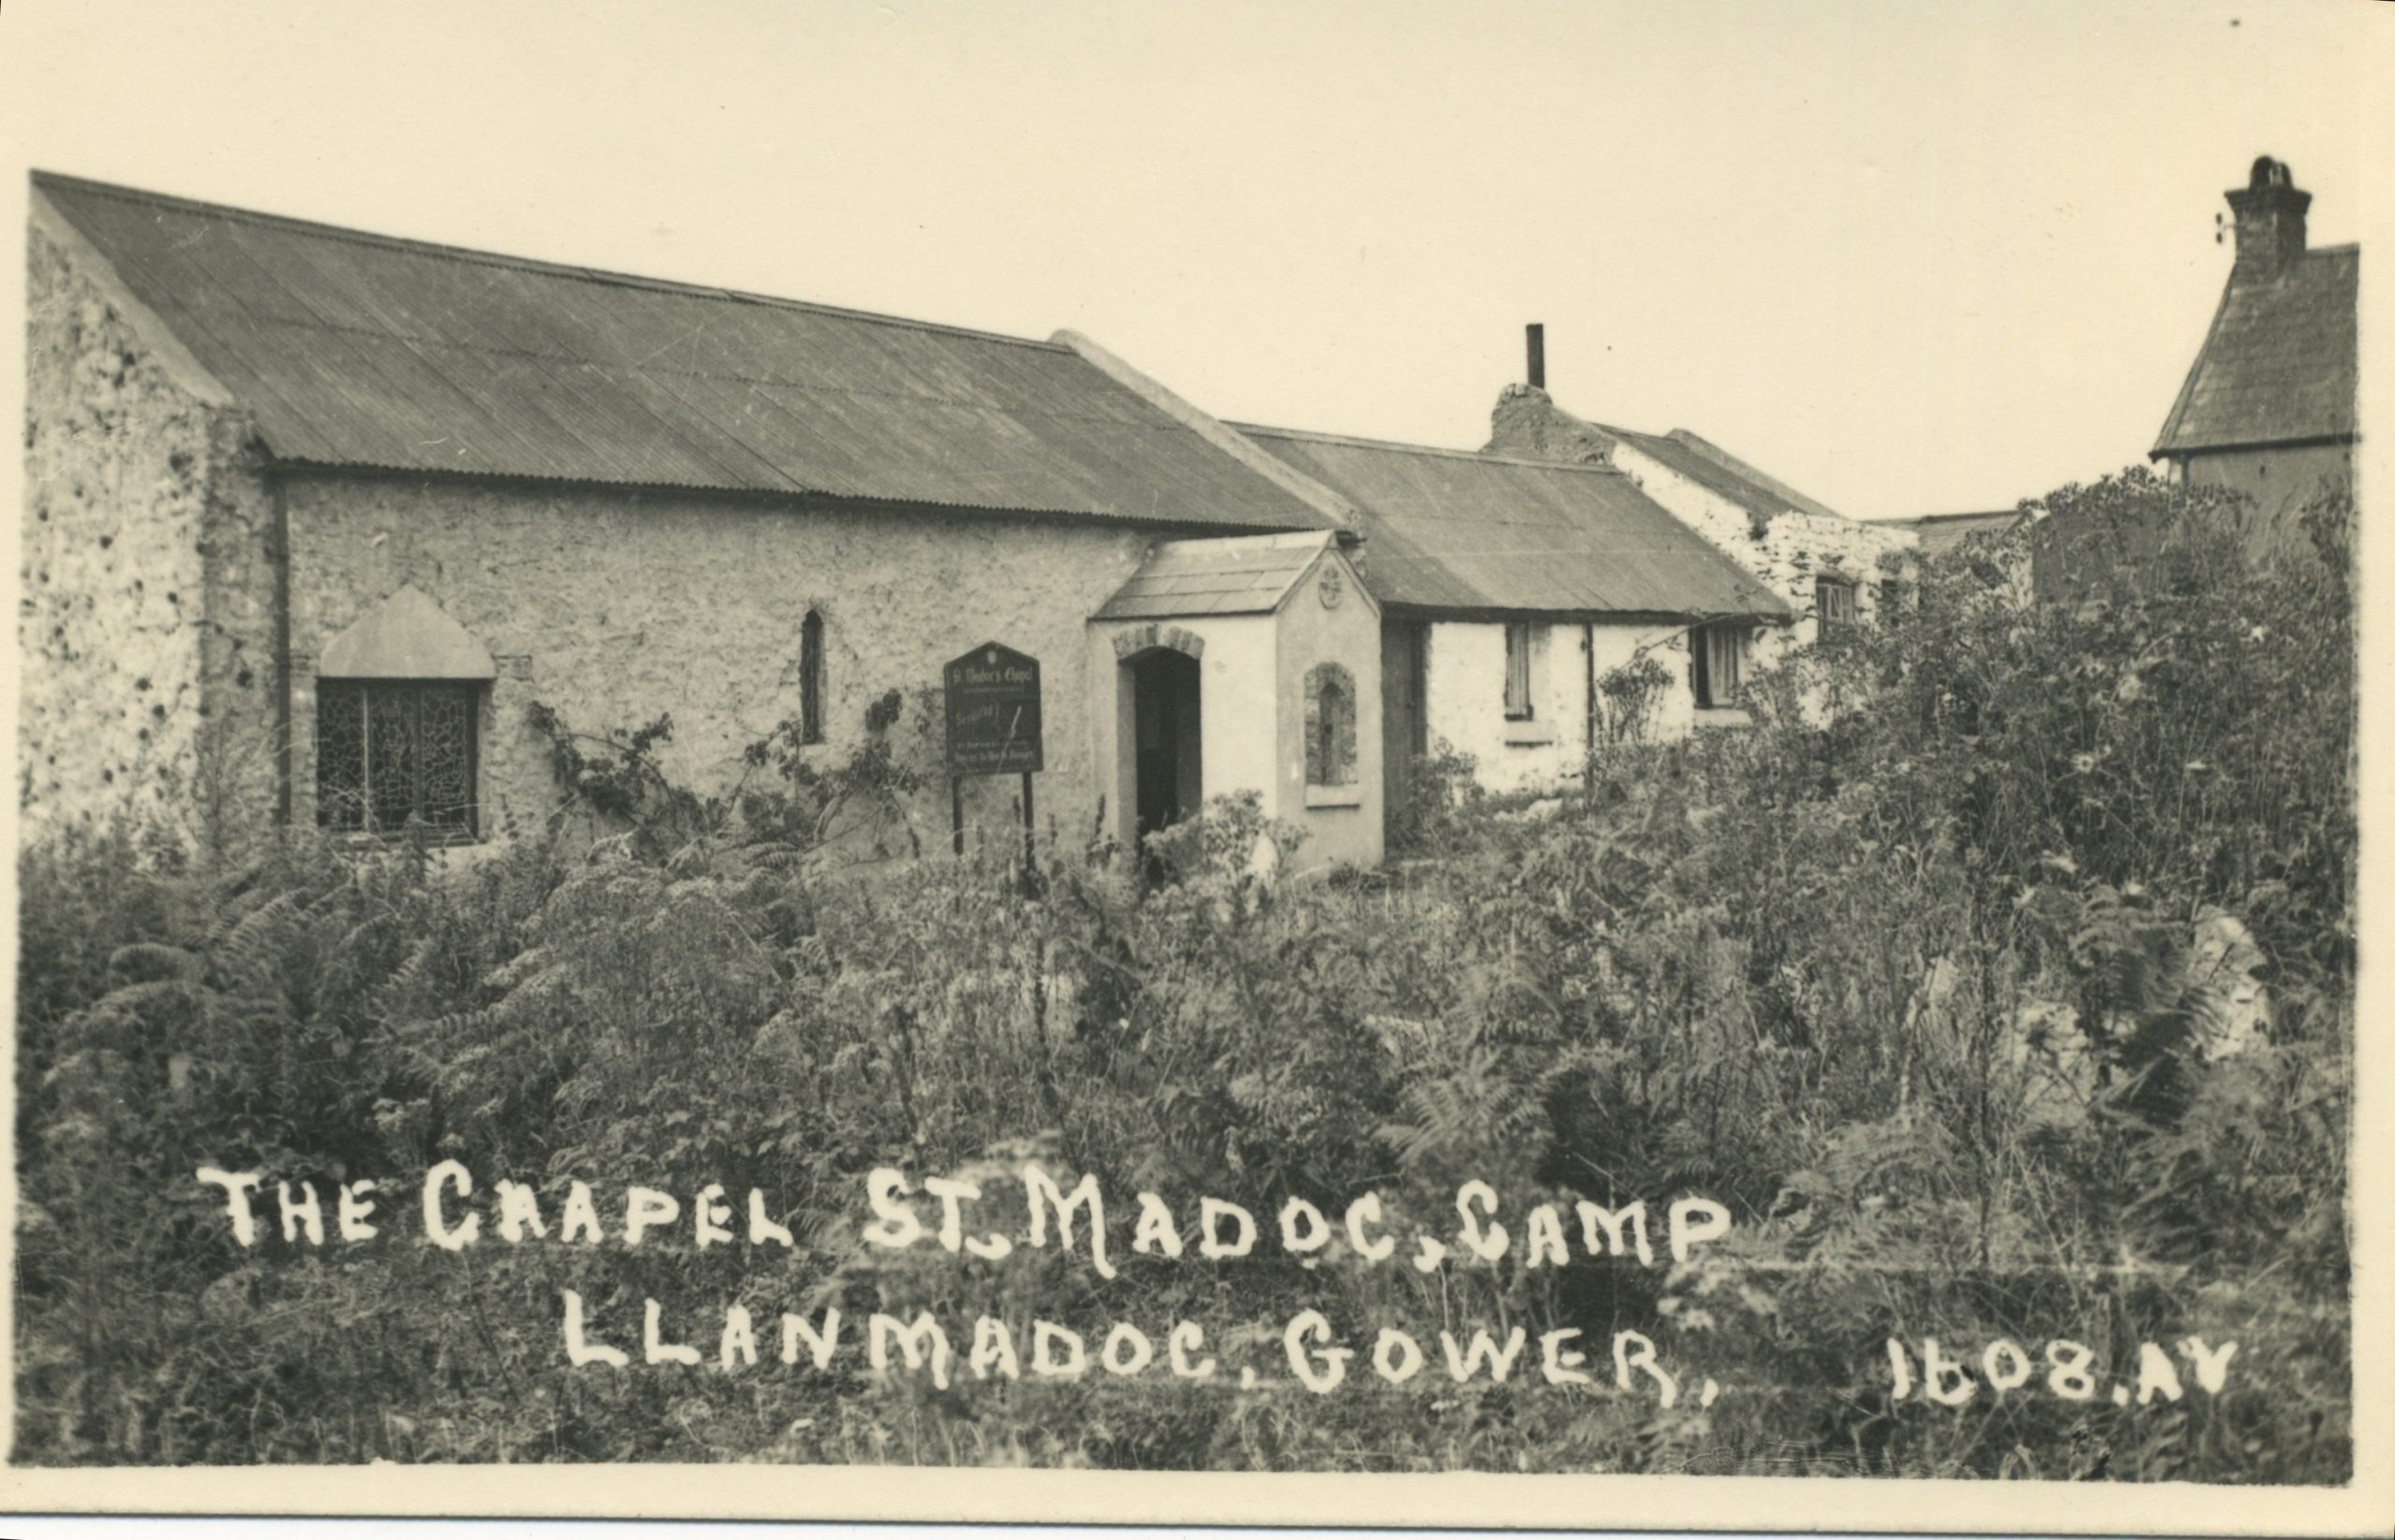 St Madoc's Chapel
Services
THE CHAPEL ST. MADOC, CAMP
LLANMADOC, GOWER, 1608.AV